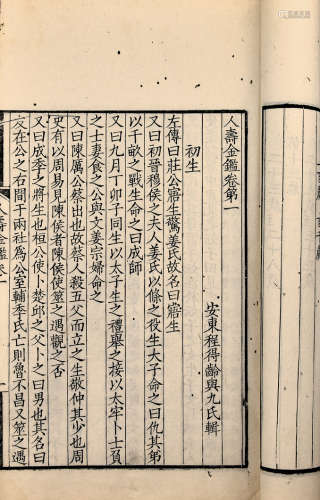 人壽金鑑卷第一
安東程得齡與九氏輯
初生
左傳曰莊公寤生驚姜氏故名曰寤生
又曰初晉穆侯之夫人姜氏以條之役生大子命之曰仇其弟
以千畝之戰生命之曰成師
又曰九月丁卯子同生以太子生之禮舉之接以太牢卜士負
之士妻食之公與文姜宗婦命之
又曰陳厲公蔡出也故蔡人殺五父而立之生敬仲其少也周
史有以周易見陳侯者陳侯使筮之遇觀之否
又曰成季之將生也桓公使卜楚邱之父卜之曰男也其名曰
友在公之右間于兩社爲公室輔季氏亡則魯不昌又筮之遇
人壽金鑑 卷一
一